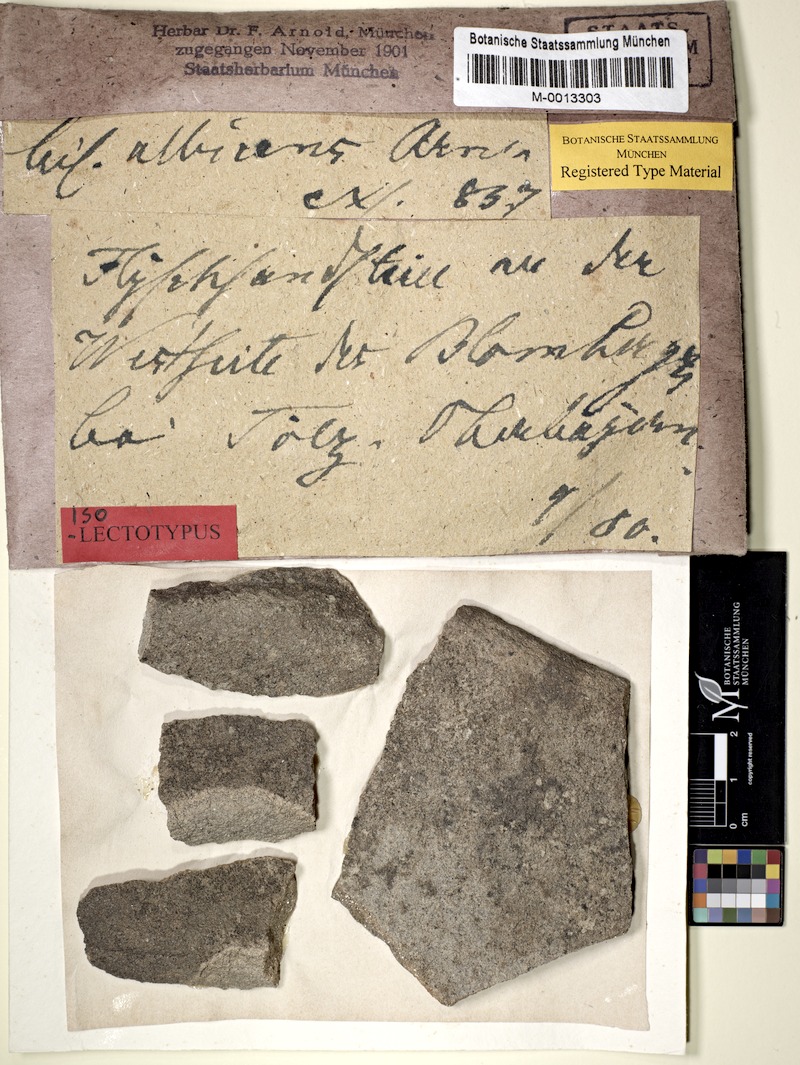 Herbar Dr. F. Arnold, München
zugegangen November 1901
Staatsherbarium München
STAATS-
Botanische Staatssammlung München
M-0013303
BOTANISCHE STAATSSAMMLUNG
MÜNCHEN
Registered Type Material
albicans Arn.
exs. 837
Flyschsandstein an der
Westseite des Blomberges
bei Tölz. Oberbayern.
9/80.
iso
-LECTOTYPUS
BOTANISCHE
STAATSSAMMLUNG
MÜNCHEN
0 1 2
cm
copyright reserved